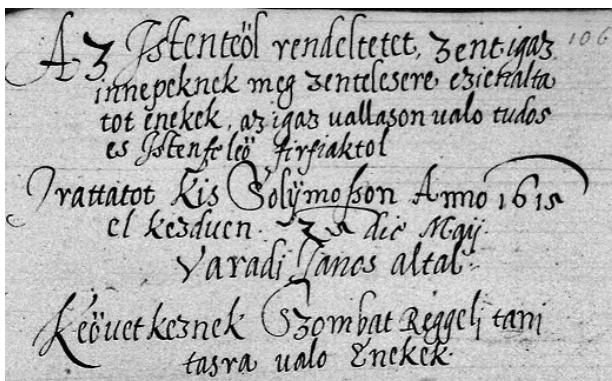 Az Istenteöl rendeltetet, zent igaz 106
innepeknek meg zentelesere ezielalta
tot enekek, az igaz uallason ualo tudos
es Istenfeleö firfiaktol
Irattatot Kis Solÿmosson Anno 1615
el kezduen. 25 die Maÿ
Varadi Janos altal.
Keöuetkeznek Szombat Reggelj tani
tasra ualo Enekek.